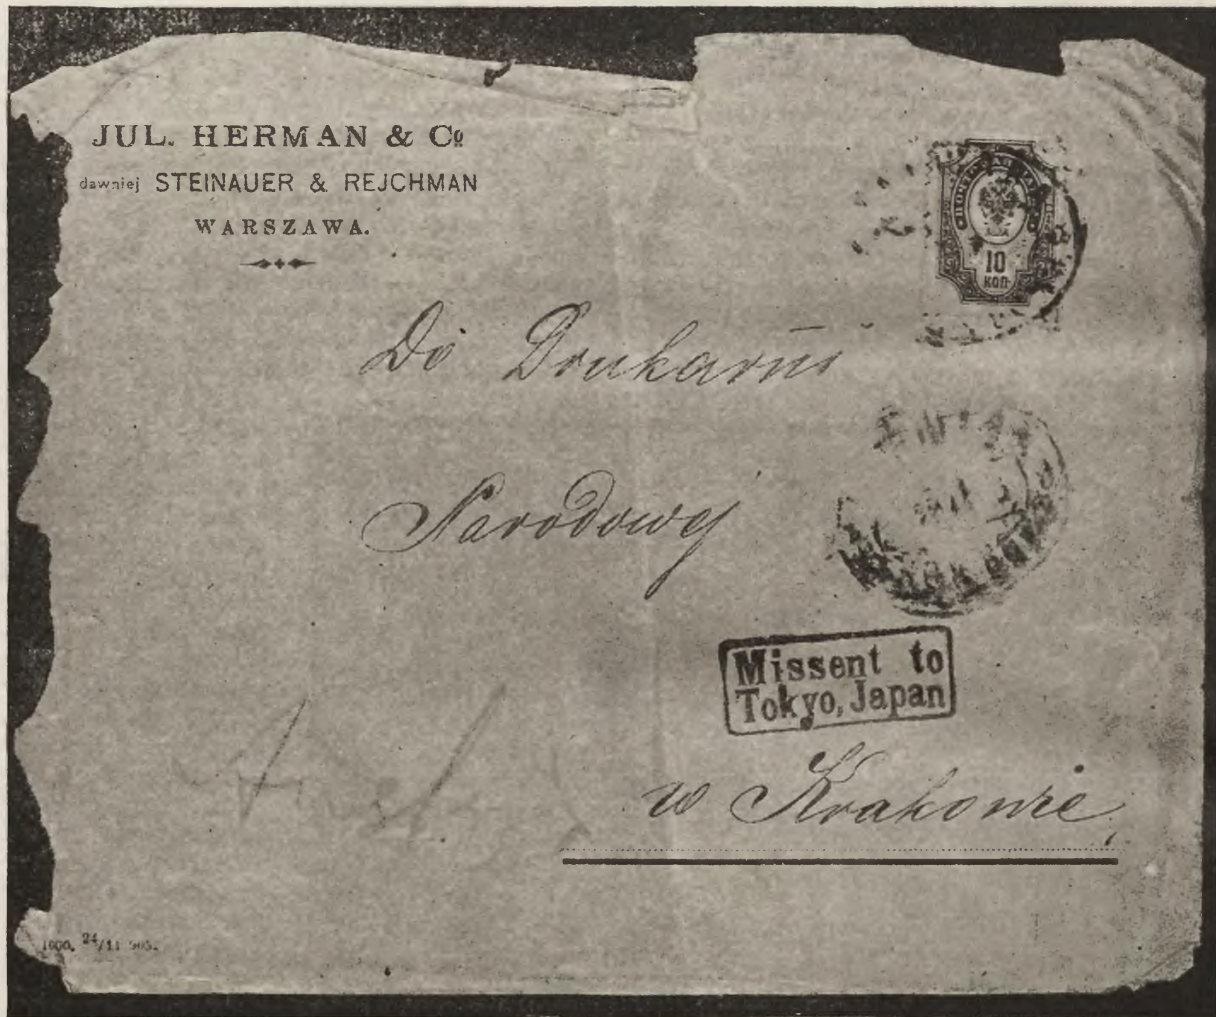 JUL. HERMAN & Cº
dawniej STEINAUER & REJCHMAN
WARSZAWA.
ПОЧТОВАЯ МАРКА
10
КОП
Do Drukarni
Narodowej
Missent to
Tokyo, Japan
w Krakowie
1000. 24/11 905.